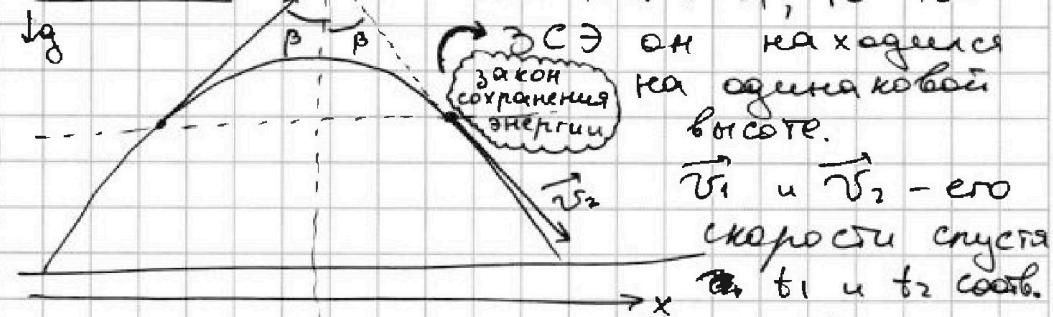 g
β β
ЗСЭ он находился
на одинаковой
высоте.
закон
сохранения
энергии
v₂
v₁ и v₂ - его
скорости спустя
t₁ и t₂ соотв.
x